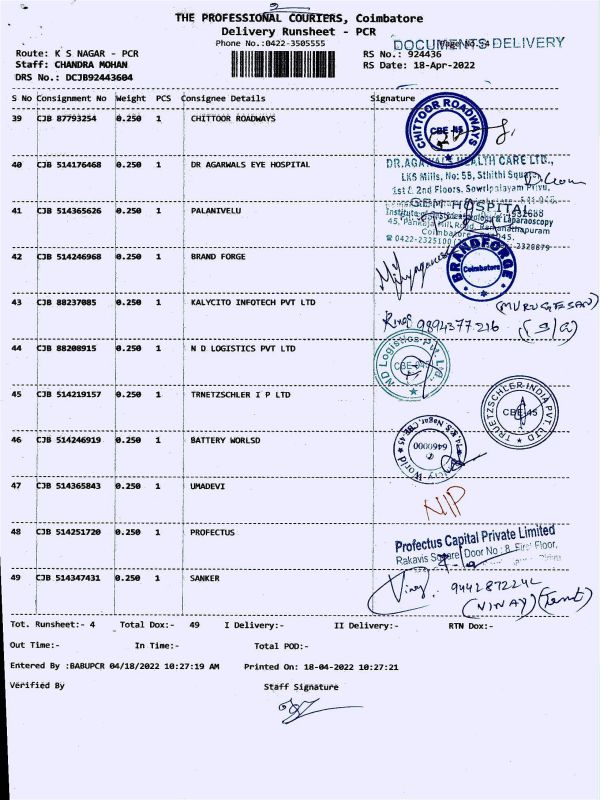 2
THE PROFESSIONAL COURIERS, Coimbatore
Delivery Runsheet - PCR
Phone No.:0422-3505555
DOCUMENTS DELIVERY
Route: K S NAGAR - PCR
RS No.: 924436
Staff: CHANDRA MOHAN
RS Date: 18-Apr-2022
DRS No.: DCJB92443604
S No Consignment No Weight PCS Consignee Details Signature
39 CJB 87793254 0.250 1 CHITTOOR ROADWAYS
CHITTOOR ROADWAYS
CBE-45
40 CJB 514176468 0.250 1 DR AGARWALS EYE HOSPITAL
DR.AGAWAL'S HEALTH CARE LTD.,
LKS Mills, No: 5B, Sthithi Square,
1st & 2nd Floors, Sowripalayam Privu,
41 CJB 514365626 0.250 1 PALANIVELU
GEM HOSPITAL
Institute of Gastroenterology & Laparaoscopy
45, Pankaja Mill Road, Ramanathapuram
Coimbatore
0422-2325100
2320879
42 CJB 514246968 0.250 1 BRAND FORGE
BRANDFORGE
Coimbatore
43 CJB 88237085 0.250 1 KALYCITO INFOTECH PVT LTD
(MURUGESAN)
9894377216
44 CJB 88208915 0.250 1 N D LOGISTICS PVT LTD
ND Logistics Pvt. Ltd.
CBE-045
45 CJB 514219157 0.250 1 TRNETZSCHLER I P LTD
TRUETZSCHLER INDIA PVT. LTD
CBE-45
46 CJB 514246919 0.250 1 BATTERY WORLSD
K.S. Nagar, CBE 45
6460000
47 CJB 514365843 0.250 1 UMADEVI
NIP
48 CJB 514251720 0.250 1 PROFECTUS
Profectus Capital Private Limited
Rakavis Square, Door No : 8, First Floor,
49 CJB 514347431 0.250 1 SANKER
Vinay
9442872242
(VINAY)
Tot. Runsheet:- 4 Total Dox:- 49 I Delivery:- II Delivery:- RTN Dox:-
Out Time:- In Time:- Total POD:-
Entered By :BABUPCR 04/18/2022 10:27:19 AM Printed On: 18-04-2022 10:27:21
Verified By Staff Signature